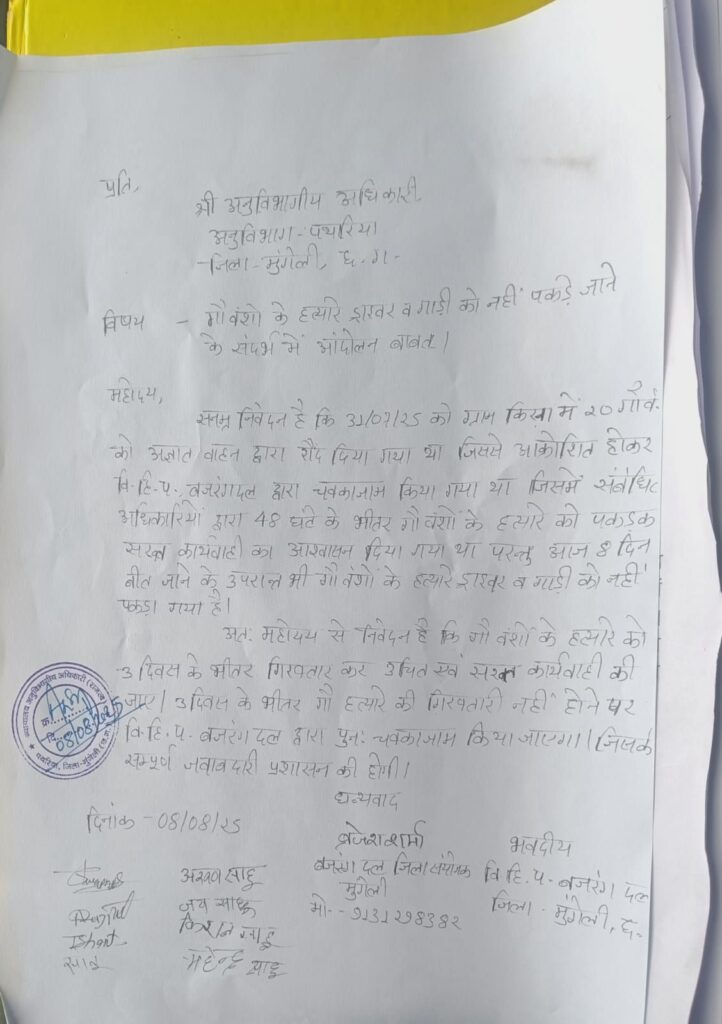 प्रति,
श्री अनुविभागीय अधिकारी,
अनुविभाग-पथरिया
जिला-मुंगेली, छ.ग.
विषय - गौवंशो के हत्यारे ड्राइवर व गाड़ी को नहीं पकड़े जाने
के संदर्भ में आंदोलन बाबत।
महोदय,
सनम्र निवेदन है कि 31/07/25 को ग्राम किरना में 20 गौवं
को अज्ञात वाहन द्वारा रौंद दिया गया था जिससे आक्रोशित होकर
वि.हि.प., बजरंगदल द्वारा चक्काजाम किया गया था जिसमें संबंधि
अधिकारियों द्वारा 48 घंटे के भीतर गौवंशों के हत्यारे को पकडक
सख्त कार्यवाही का आश्वासन दिया गया था परन्तु आज 8 दिन
बीत जाने के उपरान्त भी गौवंशों के हत्यारे ड्राइवर व गाड़ी को नहीं
पकड़ा गया है।
अतः महोदय से निवेदन है कि गौवंशों के हत्यारे को
3 दिवस के भीतर गिरफ्तार कर उचित एवं सख्त कार्यवाही की
जाए। 3 दिवस के भीतर गौ हत्यारे की गिरफ्तारी नहीं होने पर
वि.हि.प. बजरंग दल द्वारा पुनः चक्काजाम किया जाएगा। जिसके
सम्पूर्ण जवाबदारी प्रशासन की होगी।
धन्यवाद
कार्यालय अनुविभागीय अधिकारी (राजस्व)
क्र.
दि. 08/08/2025
पथरिया, जिला-मुंगेली (छ.ग.)
दिनांक - 08/08/25
ब्रजेश शर्मा
बजरंग दल जिला संयोजक
मुंगेली
मो.- 9131298382
भवदीय
वि.हि.प.- बजरंग दल
जिला - मुंगेली, छ.
साहू
जय साहू
किशन साहू
महेन्द्र साहू
Ishant